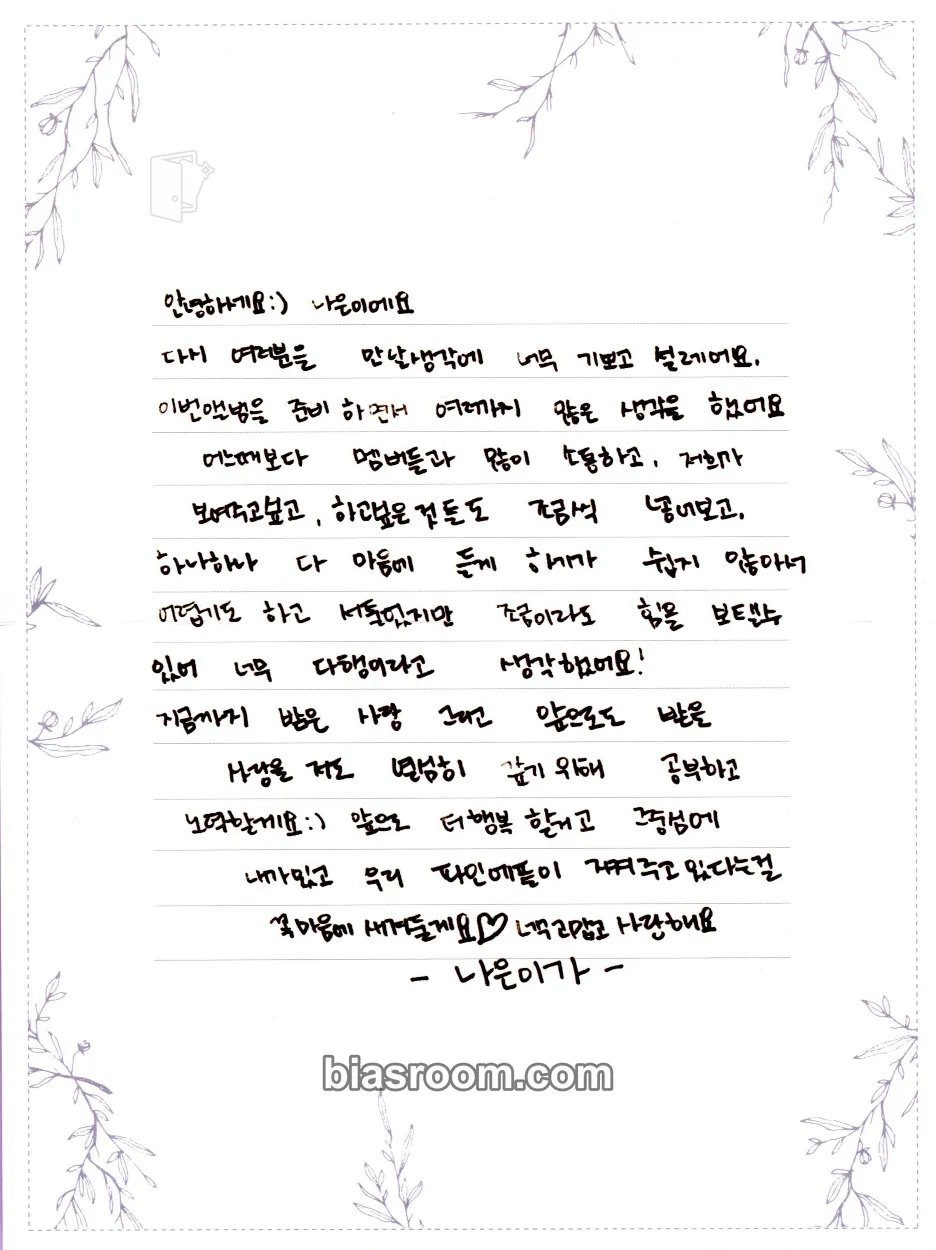 안녕하세요:) 나은이에요
다시 여러분을 만날생각에 너무 기쁘고 설레어요.
이번앨범을 준비 하면서 여러가지 많은 생각을 했어요
어느때보다 멤버들과 많이 소통하고, 저희가
보여주고싶고, 하고싶은것들도 조금씩 넣어보고,
하나하나 다 마음에 들게 하기가 쉽지 않아서
어렵기도 하고 서툴었지만 조금이라도 힘을 보탤수
있어 너무 다행이라고 생각했어요!
지금까지 받은 사랑 그리고 앞으로도 받을
사랑을 저도 열심히 갚기 위해 공부하고
노력할게요:) 앞으로 더행복 할거고 그중심에
내가있고 우리 파인에플이 지켜주고있다는걸
꼭마음에 새겨둘게요♡ 너무고맙고 사랑해요
- 나은이가 -
biasroom.com